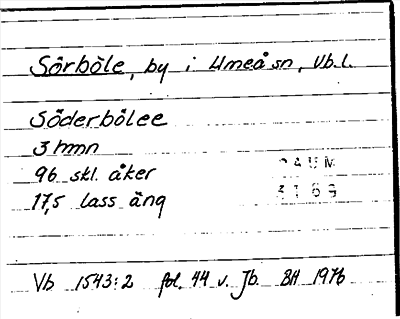 Sörböle, by i Umeå sn, Vb.l.
Söderbölee
3 hmn
96 skl. åker
DAUM
17,5 lass äng
3169
Vb 1543:2 fol. 44 v. Jb. BH 1976